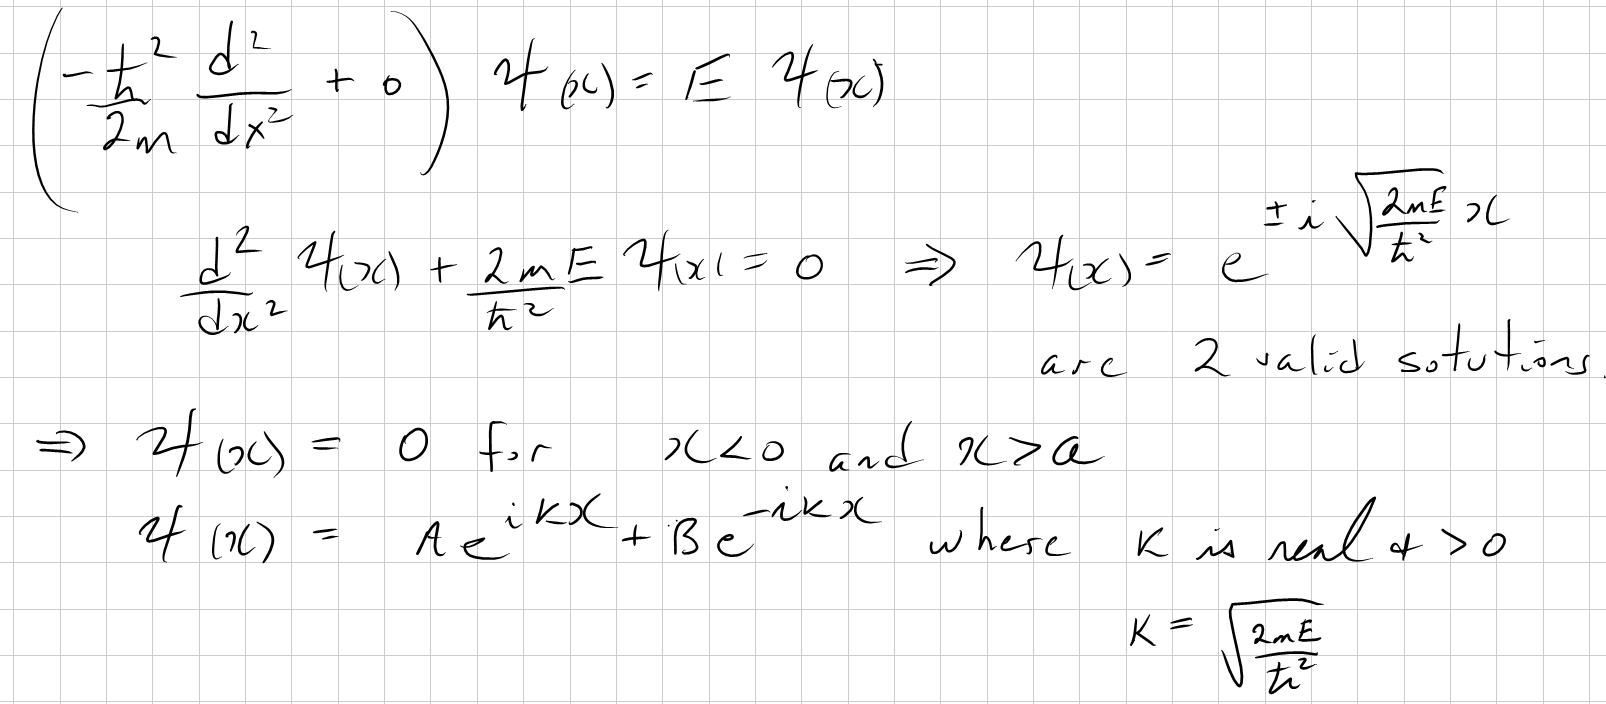 (-ħ²/2m d²/dx² + 0) Ψ(x) = E Ψ(x)
d²/dx² Ψ(x) + 2mE/ħ² Ψ(x) = 0 ⇒ Ψ(x) = e^(±i√(2mE/ħ²) x)
are 2 valid solutions.
⇒ Ψ(x) = 0 for x<0 and x>a
Ψ(x) = Ae^(ikx) + Be^(-ikx) where k is real & >0
k = √(2mE/ħ²)